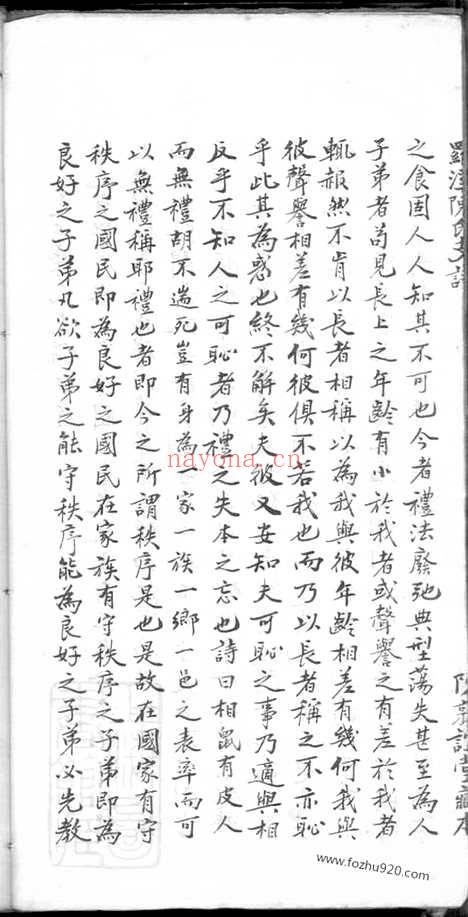 之食固人人知其不可也今者禮法廢弛典型蕩失甚至為人
子弟者苟見長上之年齡有小於我者或聲譽之有差於我者
輒赧然不肯以長者相稱以為我與彼年齡相差有幾何我與
彼聲譽相差有幾何彼俱不若我也而乃以長者稱之不亦恥
乎此其為惑也終不解矣夫彼又安知夫可恥之事乃適與相
反乎不知人之可恥者乃禮之失本之忘也詩曰相鼠有皮人
而無禮胡不遄死豈有身為一家一族一鄉一邑之表率而可
以無禮稱耶禮也者即今之所謂秩序是也是故在國家有守
秩序之國民即為良好之國民在家族有守秩序之子弟即為
良好之子弟凡欲子弟之能守秩序能為良好之子弟必先教
nayona.cn
www.fozhu920.com